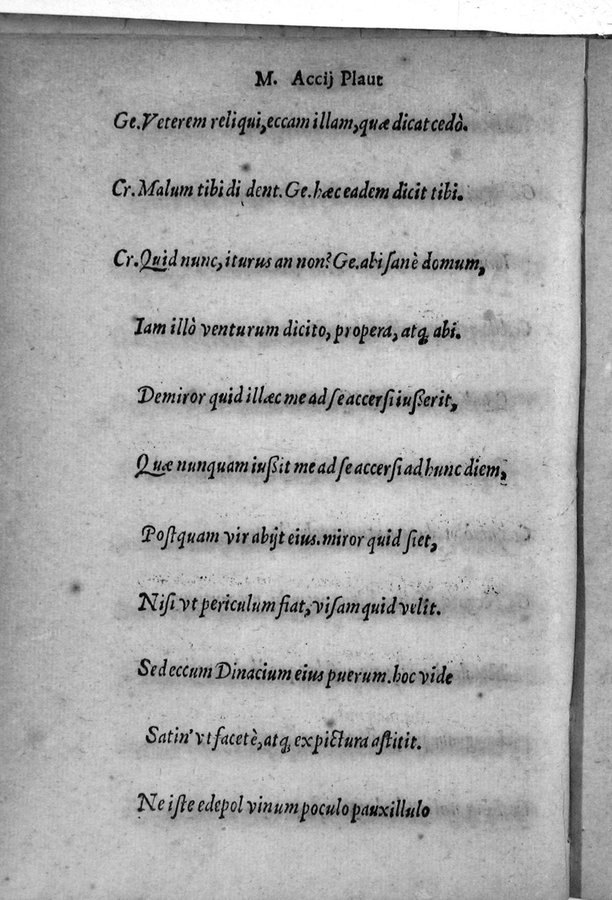 M. Accij Plaut
Ge. Veterem reliqui, eccam illam, quæ dicat cedò.
Cr. Malum tibi di dent. Ge. hæc eadem dicit tibi.
Cr. Quid nunc, iturus an non? Ge. abi sanè domum,
Iam illò venturum dicito, propera, atq; abi.
Demiror quid illæc me ad se accersi iußerit,
Quæ nunquam iußit me ad se accersi ad hunc diem,
Postquam vir abijt eius. miror quid siet,
Nisi vt periculum fiat, visam quid velit.
Sed eccum Dinacium eius puerum. hoc vide
Satin' vt facetè, atq; ex pictura astitit.
Ne iste edepol vinum poculo pauxillulo